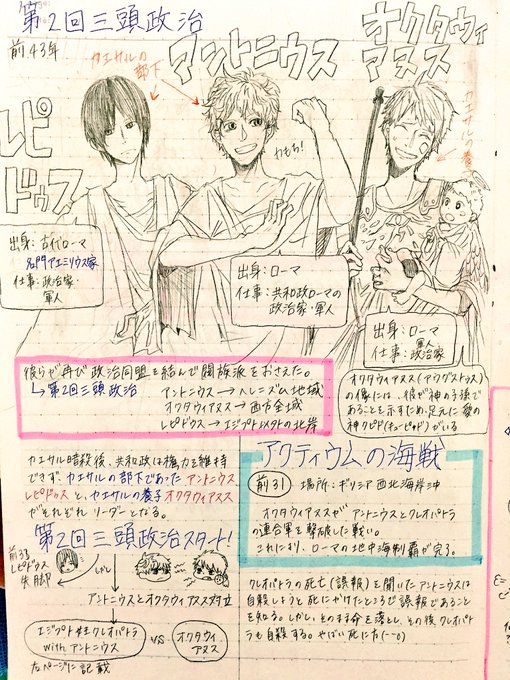 第2回三頭政治
前43年
カエサルの
部下
アントニウス
オクタウィ
アヌス
カエサルの養子
レピ
ドゥス
カもち!
出身:古代ローマ
名門アエミリウス家
仕事:政治家
軍人
出身:ローマ
仕事:共和政ローマの
政治家・軍人
出身:ローマ
仕事:軍人
政治家
彼らが再び政治同盟を結んで閥族派をおさえた。
↳第2回三頭政治
アントニウス→ヘレニズム地域
オクタウィアヌス→西方全域
レピドゥス→エジプト以外の北岸
オクタウィアヌス(アウグストゥス)
の像には、彼が神の子孫で
あることを示すため足元に愛の
神クピド(キューピッド)がいる
カエサル暗殺後、共和政は権力を維持
できず、カエサルの部下であったアントニウス
レピドゥスと、カエサルの養子オクタウィアヌス
がそれぞれリーダーとなる。
第2回三頭政治スタート!
前36
レピドゥス
失脚
しかし
アントニウスとオクタウィアヌス対立
エジプト女王クレオパトラ
with アントニウス
VS
オクタウィ
アヌス
右ページに記載
アクティウムの海戦
前31 場所:ギリシア西北海岸沖
オクタウィアヌスがアントニウスとクレオパトラ
の連合軍を撃破した戦い。
これにより、ローマの地中海制覇が完了。
クレオパトラの死亡(誤報)を聞いたアントニウスは
自殺しようと死にかけたところで誤報であること
を知る。しかし、そのまま命を落とし、その後、クレオパト
ラも自殺する。やばい死に方(-_-)